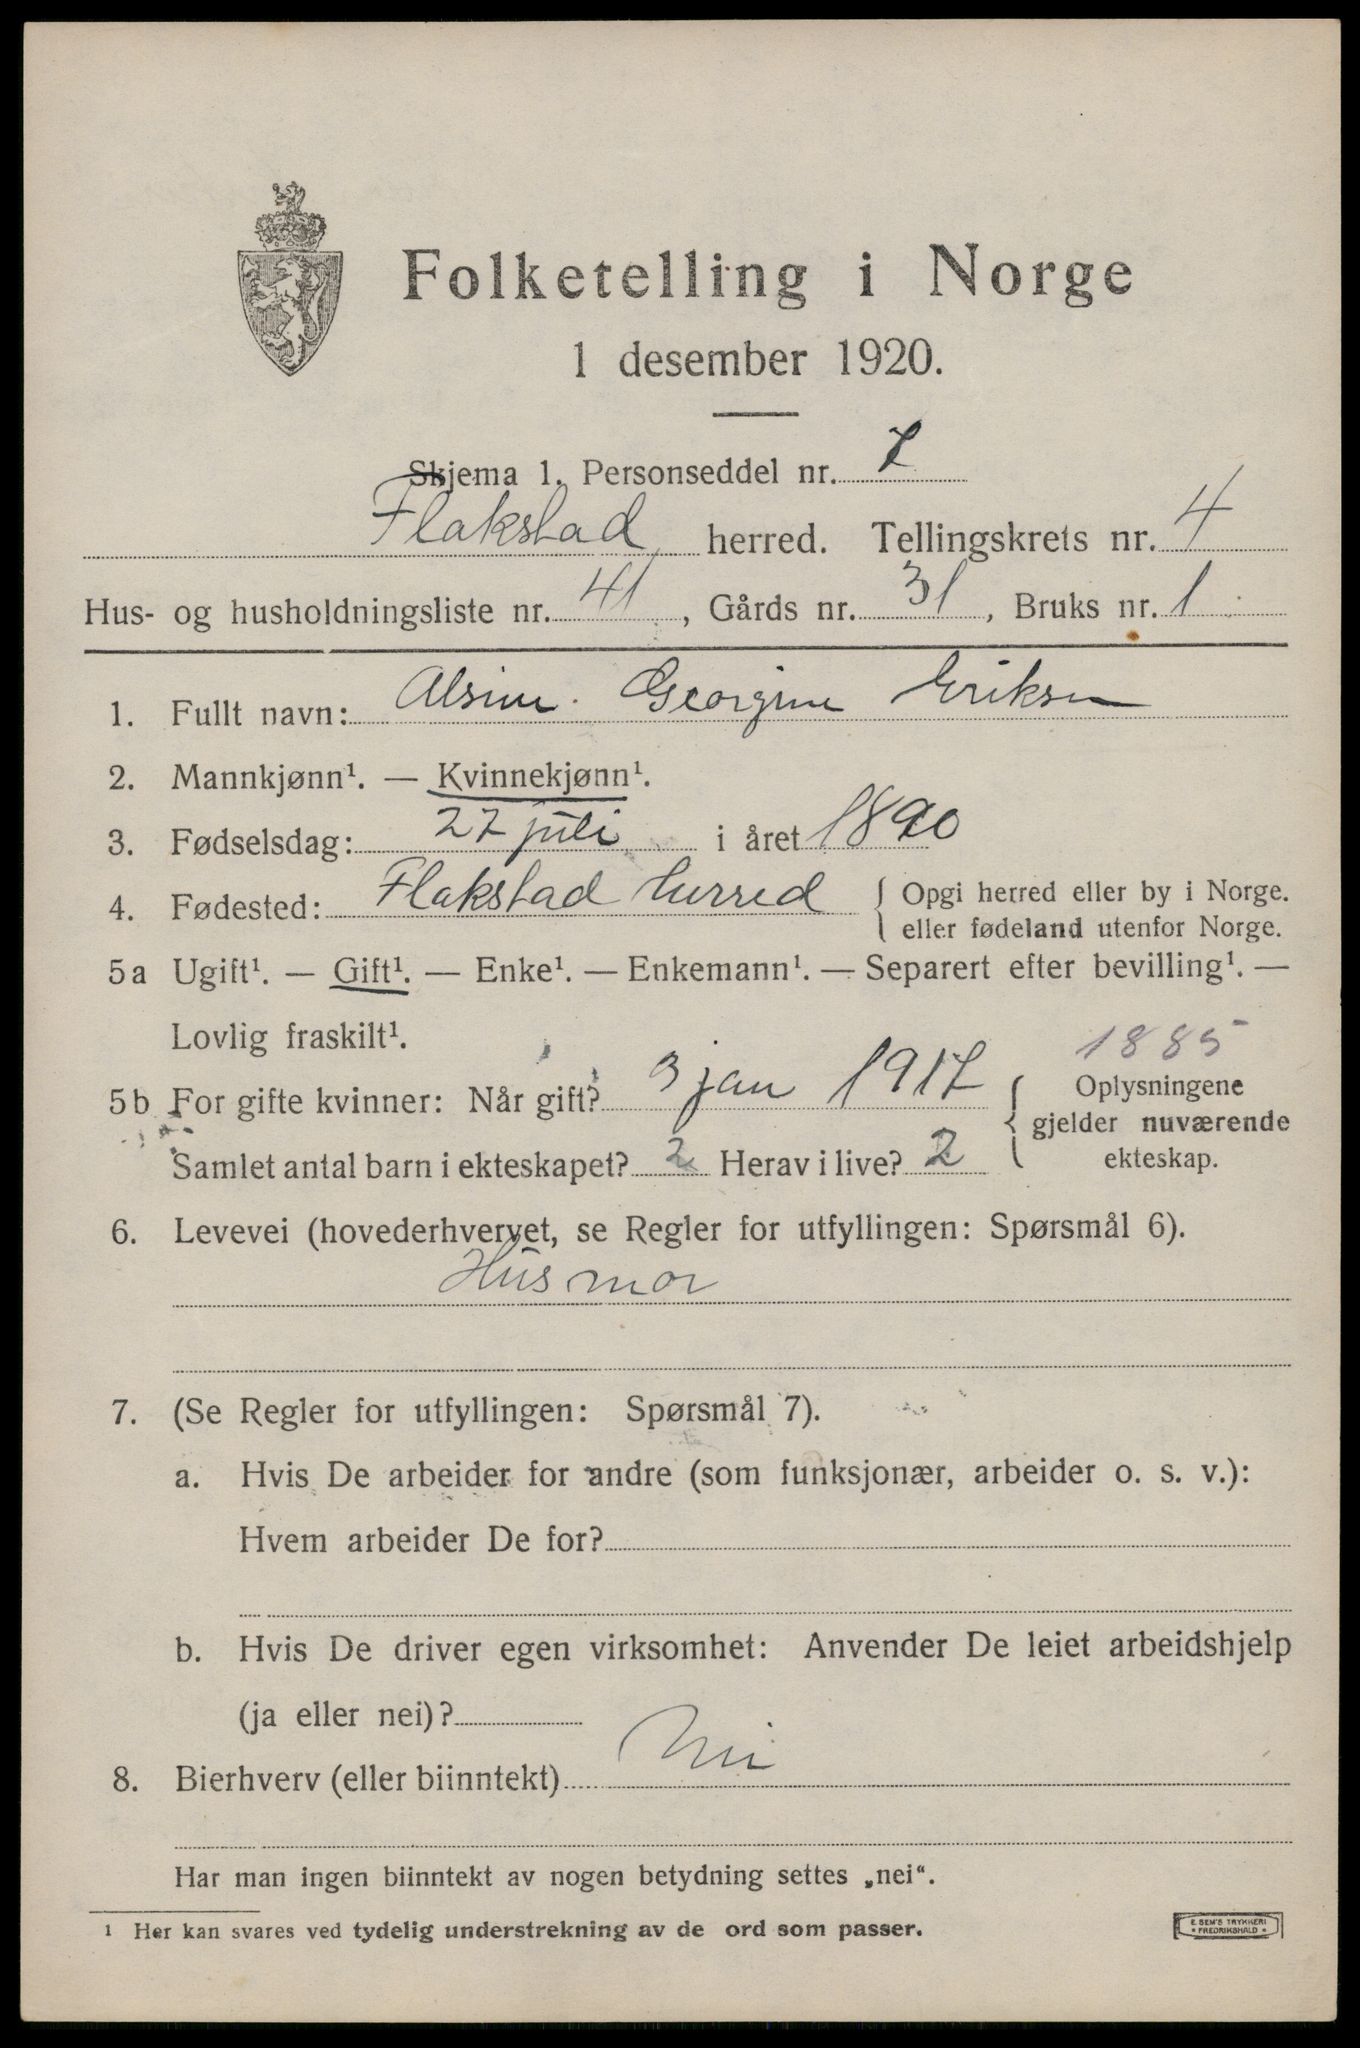 Folketelling i Norge
1 desember 1920.
Skjema 1. Personseddel nr. 7
Flakstad herred. Tellingskrets nr. 4
Hus- og husholdningsliste nr. 41, Gårds nr. 31, Bruks nr. 1
1. Fullt navn: Alsine Georgine Eriksen
2. Mannkjønn¹. — Kvinnekjønn¹.
3. Fødselsdag: 27 juli i året 1890
4. Fødested: Flakstad herred { Opgi herred eller by i Norge.
eller fødeland utenfor Norge.
5a Ugift¹. — Gift¹. — Enke¹. — Enkemann¹. — Separert efter bevilling¹. —
Lovlig fraskilt¹.
1885
5b For gifte kvinner: Når gift? 3 jan 1917 { Oplysningene
gjelder nuværende
ekteskap.
Samlet antal barn i ekteskapet? 2 Herav i live? 2
6. Levevei (hovederhvervet, se Regler for utfyllingen: Spørsmål 6).
Husmor
7. (Se Regler for utfyllingen: Spørsmål 7).
a. Hvis De arbeider for andre (som funksjonær, arbeider o. s. v.):
Hvem arbeider De for?
b. Hvis De driver egen virksomhet: Anvender De leiet arbeidshjelp
(ja eller nei)?
8. Bierhverv (eller biinntekt) Nei
Har man ingen biinntekt av nogen betydning settes „nei“.
¹ Her kan svares ved tydelig understrekning av de ord som passer.
E. SEM'S TRYKKERI
* FREDRIKSHALD *